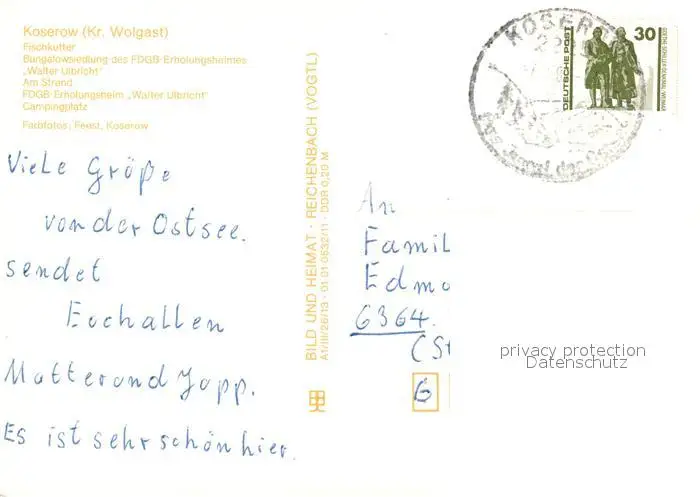 Koserow (Kr. Wolgast)
Fischkutter
Bungalowsiedlung des FDGB-Erholungsheimes
„Walter Ulbricht"
Am Strand
FDGB-Erholungsheim „Walter Ulbricht"
Campingplatz
Farbfotos: Feest, Koserow
Viele Größe
von der Ostsee.
sendet
Euch allen
Mutter und Jopp.
Es ist sehr schön hier.
BILD UND HEIMAT · REICHENBACH (VOGTL)
A1/III/26/13 · 01 01 0532/11 · DDR 0,20 M
KOSEROW
DEUTSCHE POST
30
GOETHE-SCHILLER-DENKMAL WEIMAR
An
Famil
Edmo
6364.
(St
6
privacy protection
Datenschutz